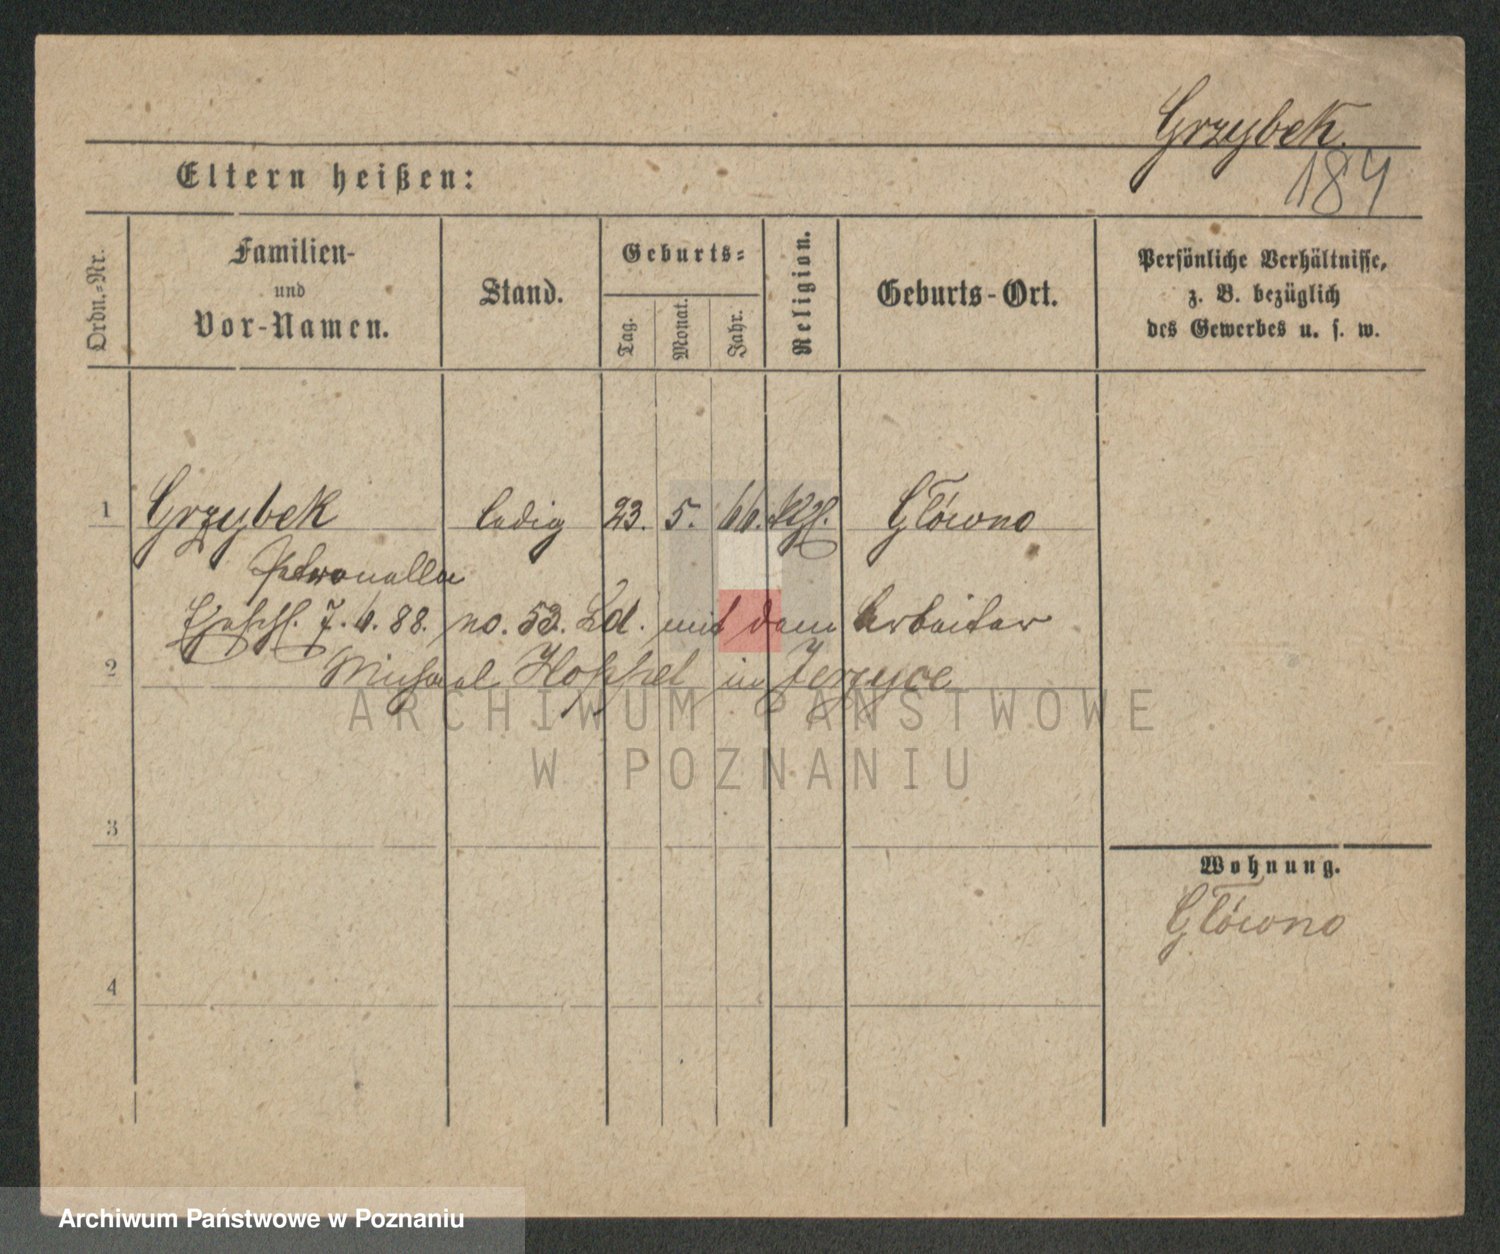 Grzybek.
184
Eltern heißen:
Ordn.-Nr.
Familien-
und
Vor-Namen.
Stand.
Geburts-
Tag.
Monat.
Jahr.
Religion.
Geburts-Ort.
Persönliche Verhältnisse,
z. B. bezüglich
des Gewerbes u. s. w.
1 Grzybek ledig 23. 5. 66. ktfl. Główno
Petronalla
Eheschl. 7. 6. 88. no. 53. Ld. mit dem Arbeiter
2 Michael Hoppel in Jerzyce
ARCHIWUM PAŃSTWOWE
W POZNANIU
3
Wohnung.
Główno
4
Archiwum Państwowe w Poznaniu